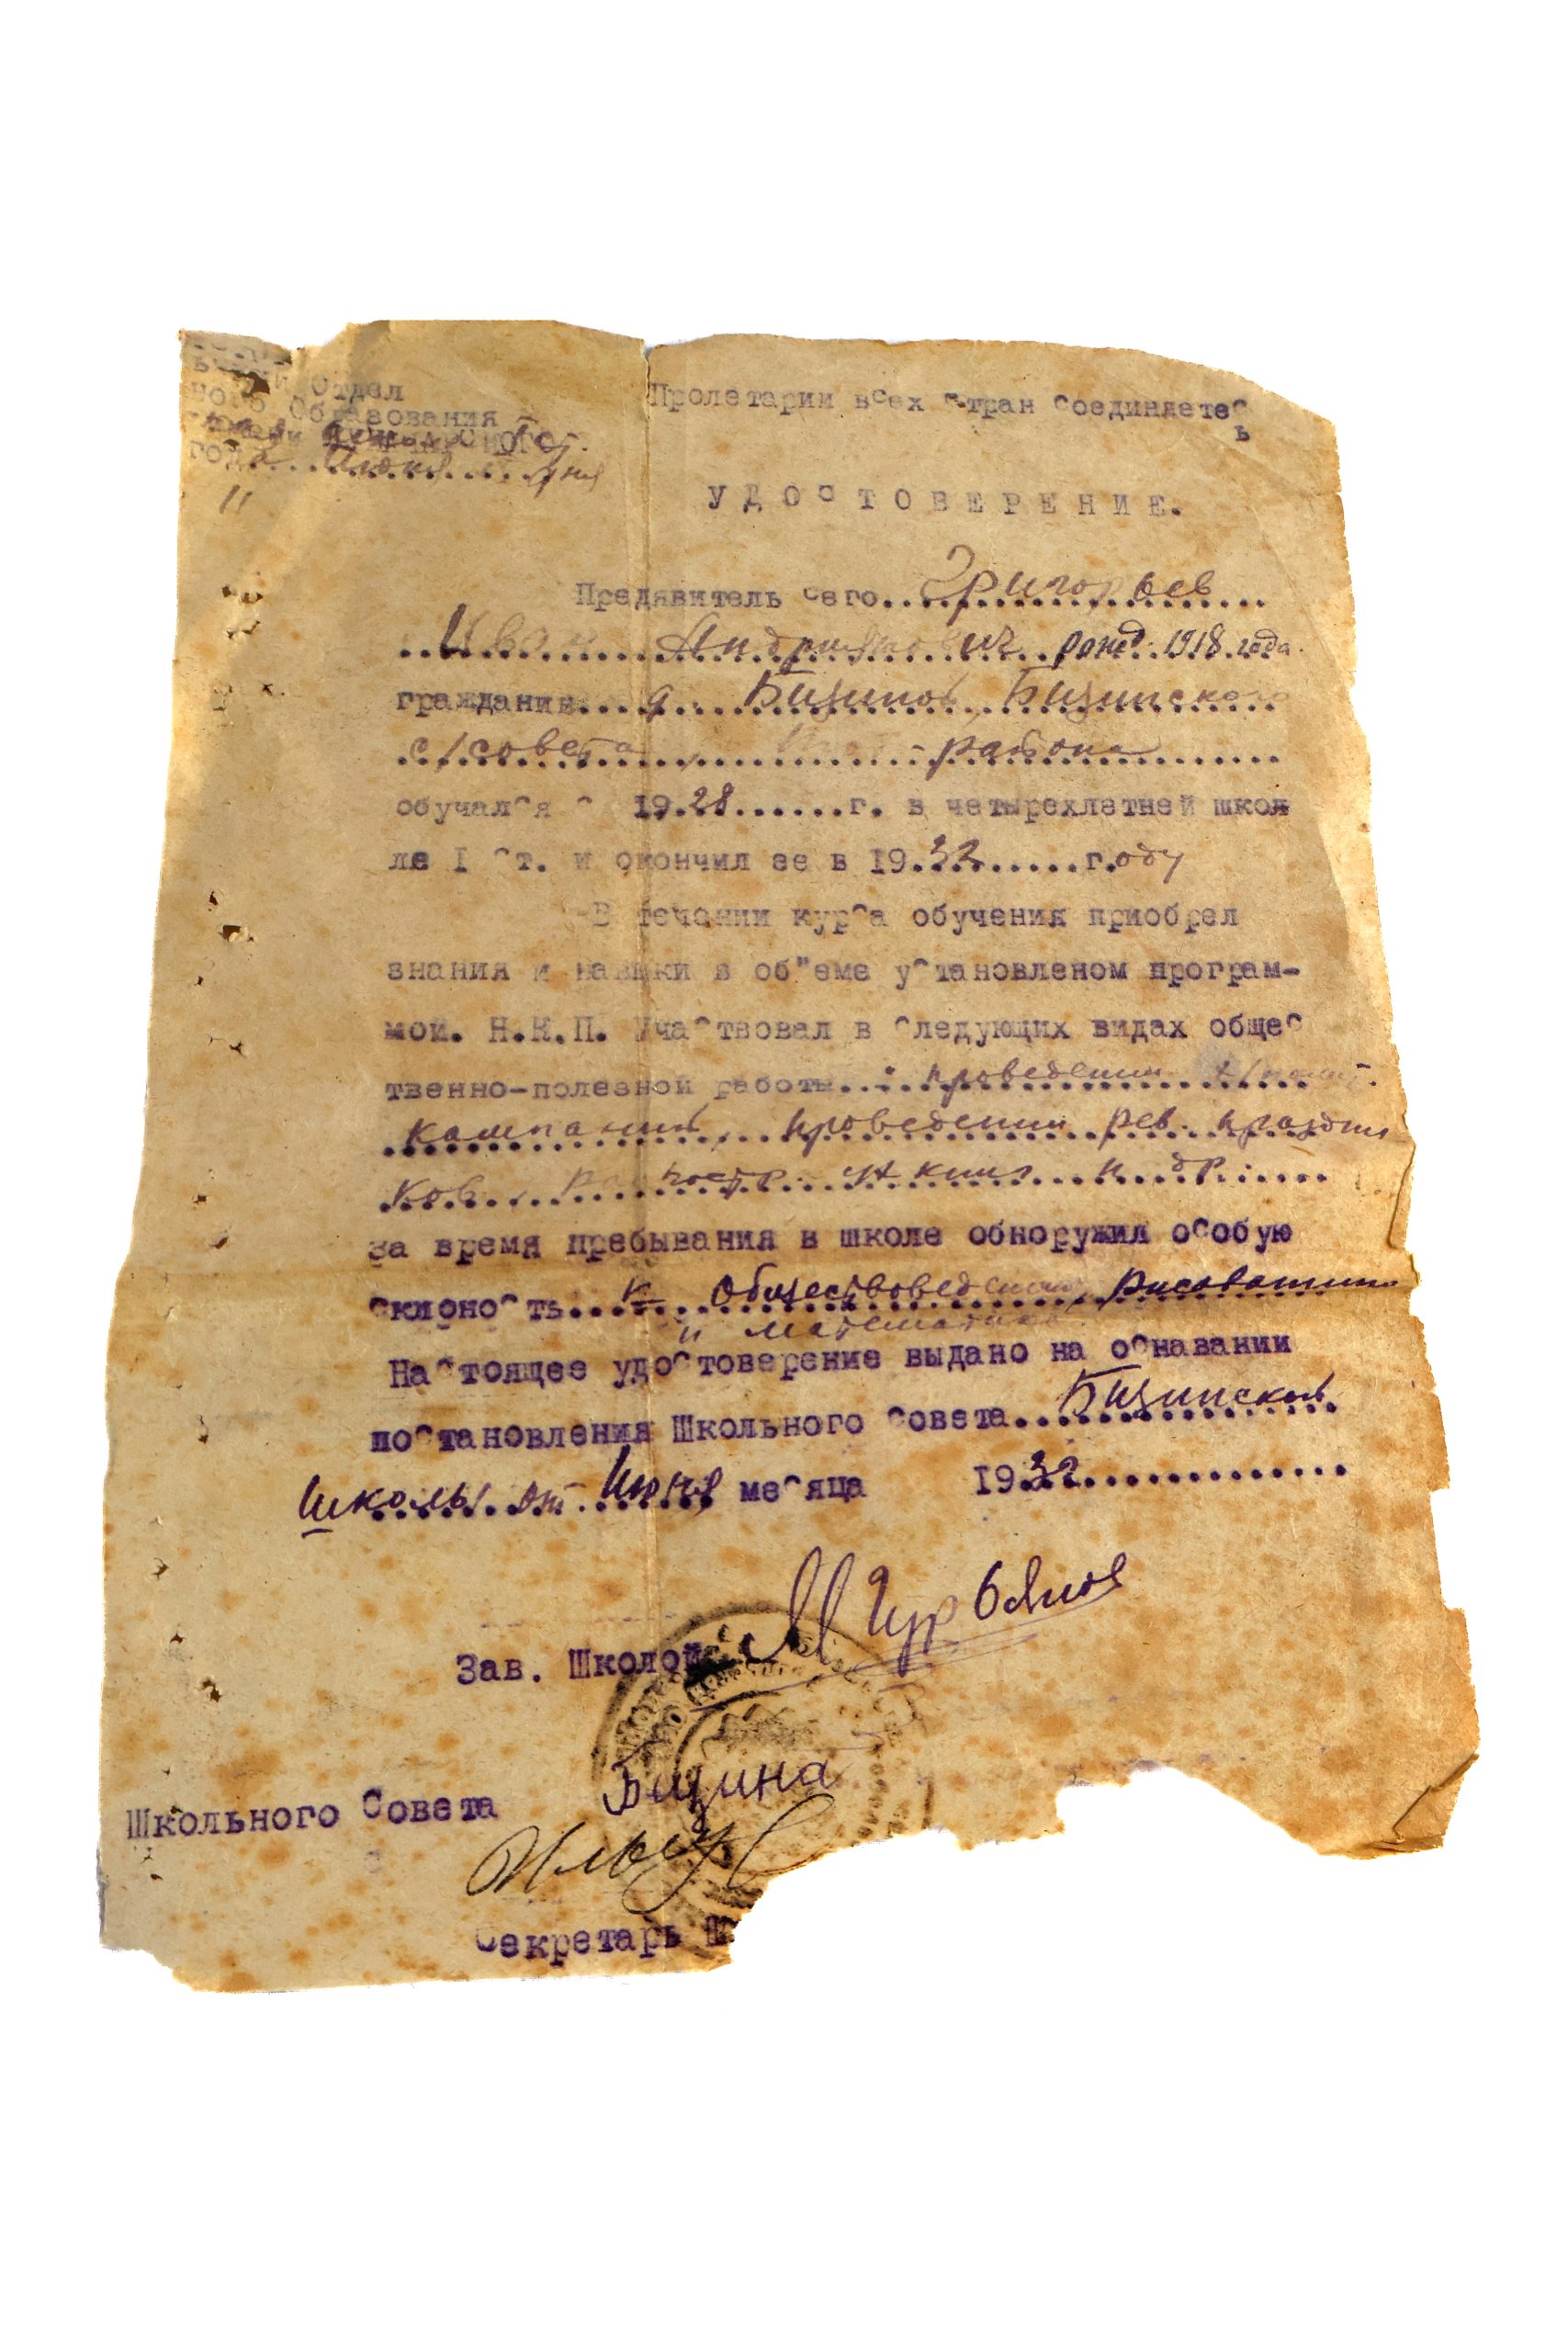 Отдел
ного Образования
года Июня дня
Пролетарии всех стран соединяетес
ь
УДОСТОВЕРЕНИЕ.
Предявитель сего Григорьев
Иван рожд. 1918 года.
граждании д.
с/совета, района
обучался с 1928 г. в четырехлетней школ
ле I ст. и окончил ее в 1932 г.оду
В течении курса обучения приобрел
знания и навыки в об"еме установленом програм-
мой. Н.К.П. Участвовал в следующих видах общес
твенно-полезной работы: проведении
кампаний, проведении рев. праздни
ков, книг и др.
за время пребывания в школе обноружил особую
склоность к Обществоведению, рисованию
и математике
Настоящее удостоверение выдано на оснавании
постановления Школьного Совета
Школы от Июня месяца 1932
Зав. Школой
Школьного Совета
Секретарь Ш